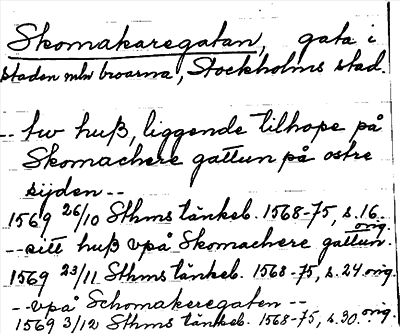 Skomakaregatan, gata i
staden mln broarna, Stockholms stad.
-- tw huß, liggende tilhope på
Skomachere gattun på ostre
sijden --
1569 26/10 Sthms tänkeb. 1568-75, s.16 orig.
-- sitt huß vpå Skomachere gattun.
1569 23/11 Sthms tänkeb. 1568-75, s.24 orig.
-- vpå Schomakeregaten --
1569 3/12 Sthms tänkeb. 1568-75, s.30. orig.